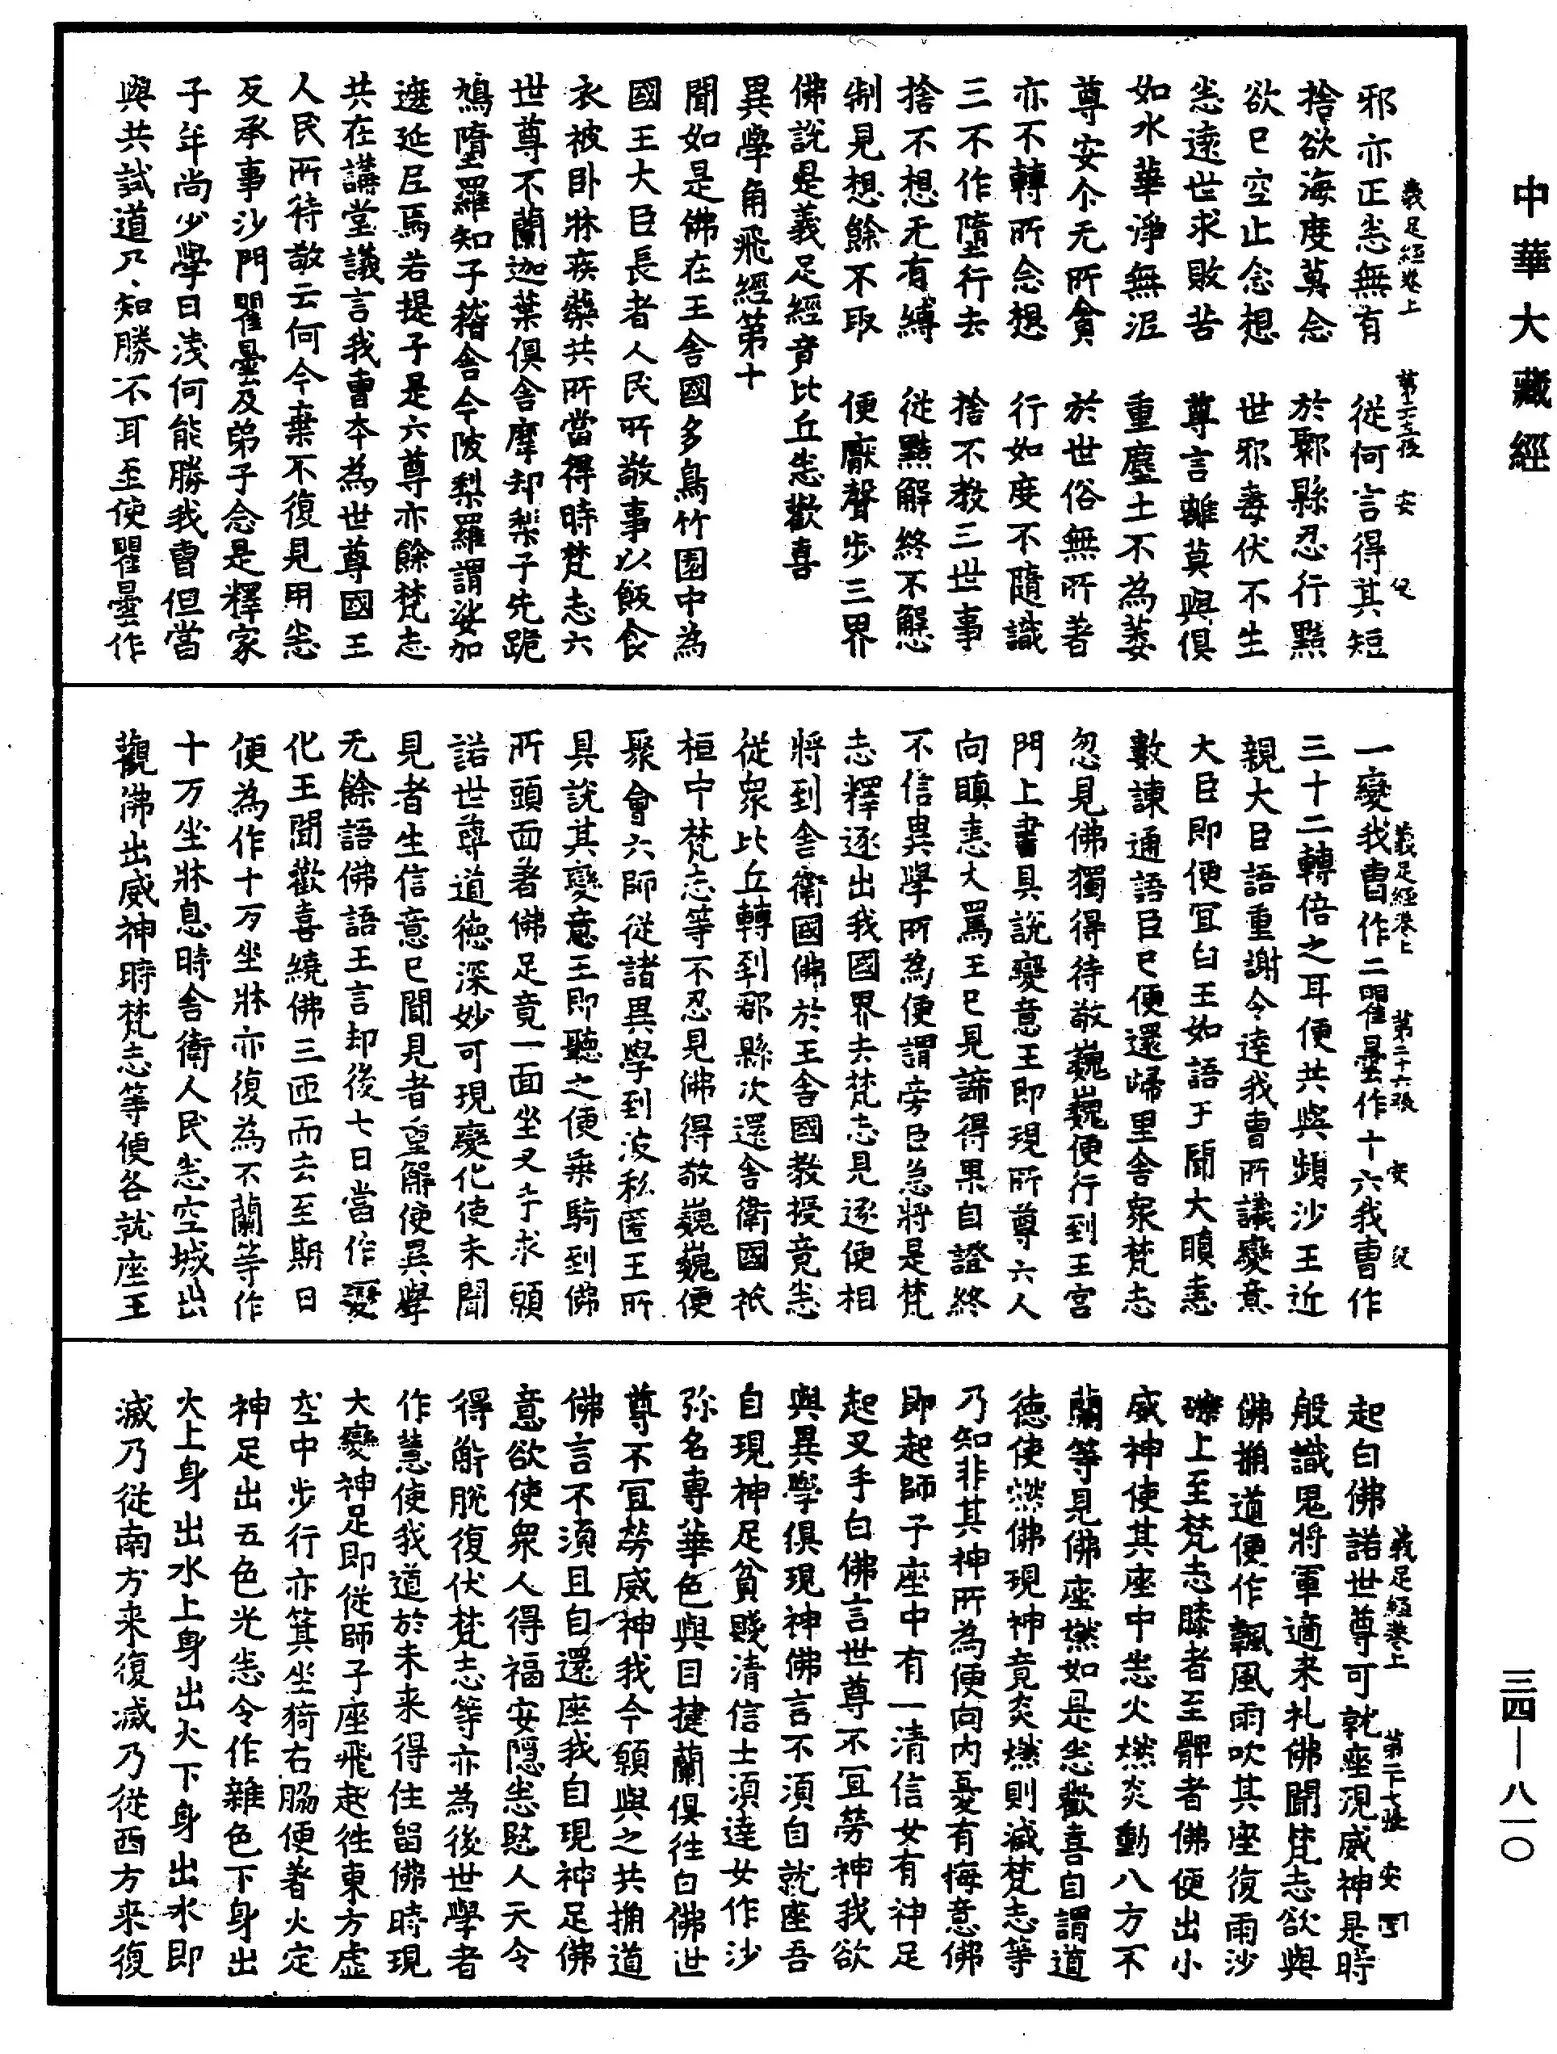 中華大藏經
義足經卷上 第二十五張 安 皃
邪亦正恚無有 從何言得其短
捨欲海度莫念 於鄹縣忍行黠
欲已空止念想 世邪毒伏不生
恚遠世求敗苦 尊言離莫與俱
如水華淨無泥 重塵土不為萎
尊安尒无所貪 於世俗無所著
亦不轉所念想 行如度不隨識
三不作墮行去 捨不教三世事
捨不想无有縛 從黠解終不懈
制見想餘不取 便厭聲步三界
佛說是義足經竟比丘恚歡喜
異學角飛經第十
聞如是佛在王舍國多鳥竹園中為
國王大臣長者人民所敬事以飯食
衣被卧牀疾藥共所當得時梵志六
世尊不蘭迦葉俱舍摩却梨子先跪
鳩墮羅知子稽舍今陂梨羅謂娑加
遮延尼焉若提子是六尊亦餘梵志
共在講堂議言我曹本為世尊國王
人民所待敬云何今棄不復見用恚
反承事沙門瞿曇及弟子念是釋家
子年尚少學日淺何能勝我曹但當
與共試道乃知勝不耳至使瞿曇作
義足經卷上 第二十六張 安 皃
一變我曹作二瞿曇作十六我曹作
三十二轉倍之耳便共與頻沙王近
親大臣語重謝令達我曹所議變意
大臣即便冝白王如語王聞大瞋恚
數諫通語臣已便還歸里舍衆梵志
忽見佛獨得待敬巍巍便行到王宮
門上書具說變意王即現所尊六人
向瞋恚大罵王已見諦得果自證終
不信異學所為便謂旁臣急將是梵
志釋逐出我國界去梵志見逐便相
將到舍衛國佛於王舍國教授竟恚
從衆比丘轉到郡縣次還舍衛國祇
桓中梵志等不忍見佛得敬巍巍便
聚會六師從諸異學到波私匿王所
具說其變意王即聽之便乘騎到佛
所頭面著佛足竟一面坐叉手求願
諾世尊道德深妙可現變化使未聞
見者生信意已聞見者重解使異學
无餘語佛語王言却後七日當作變
化王聞歡喜繞佛三匝而去至期日
便為作十万坐牀亦復為不蘭等作
十万坐牀息時舍衛人民恚空城出
觀佛出威神時梵志等便各就座王
義足經卷上 第二十七張 安
起白佛諾世尊可就座現威神是時
般識鬼將軍適来礼佛聞梵志欲與
佛捔道便作飄風雨吹其座復雨沙
礫上至梵志膝者至髀者佛便出小
威神使其座中恚火燃炎動八方不
蘭等見佛座燃如是恚歡喜自謂道
德使燃佛現神竟炎燃則滅梵志等
乃知非其神所為便向内憂有悔意佛
即起師子座中有一清信女有神足
起叉手白佛言世尊不冝勞神我欲
與異學俱現神佛言不須自就座吾
自現神足貧賤清信士須達女作沙
弥名專華色與目揵蘭俱往白佛世
尊不冝勞威神我今願與之共捔道
佛言不須且自還座我自現神足佛
意欲使衆人得福安隱恚愍人天令
得解脫復伏梵志等亦為後世學者
作慧使我道於未来得住留佛時現
大變神足即從師子座飛起往東方虛
空中步行亦箕坐猗右脇便著火定
神足出五色光恚令作雜色下身出
火上身出水上身出火下身出水即
滅乃從南方来復滅乃從西方来復
三四—八一〇